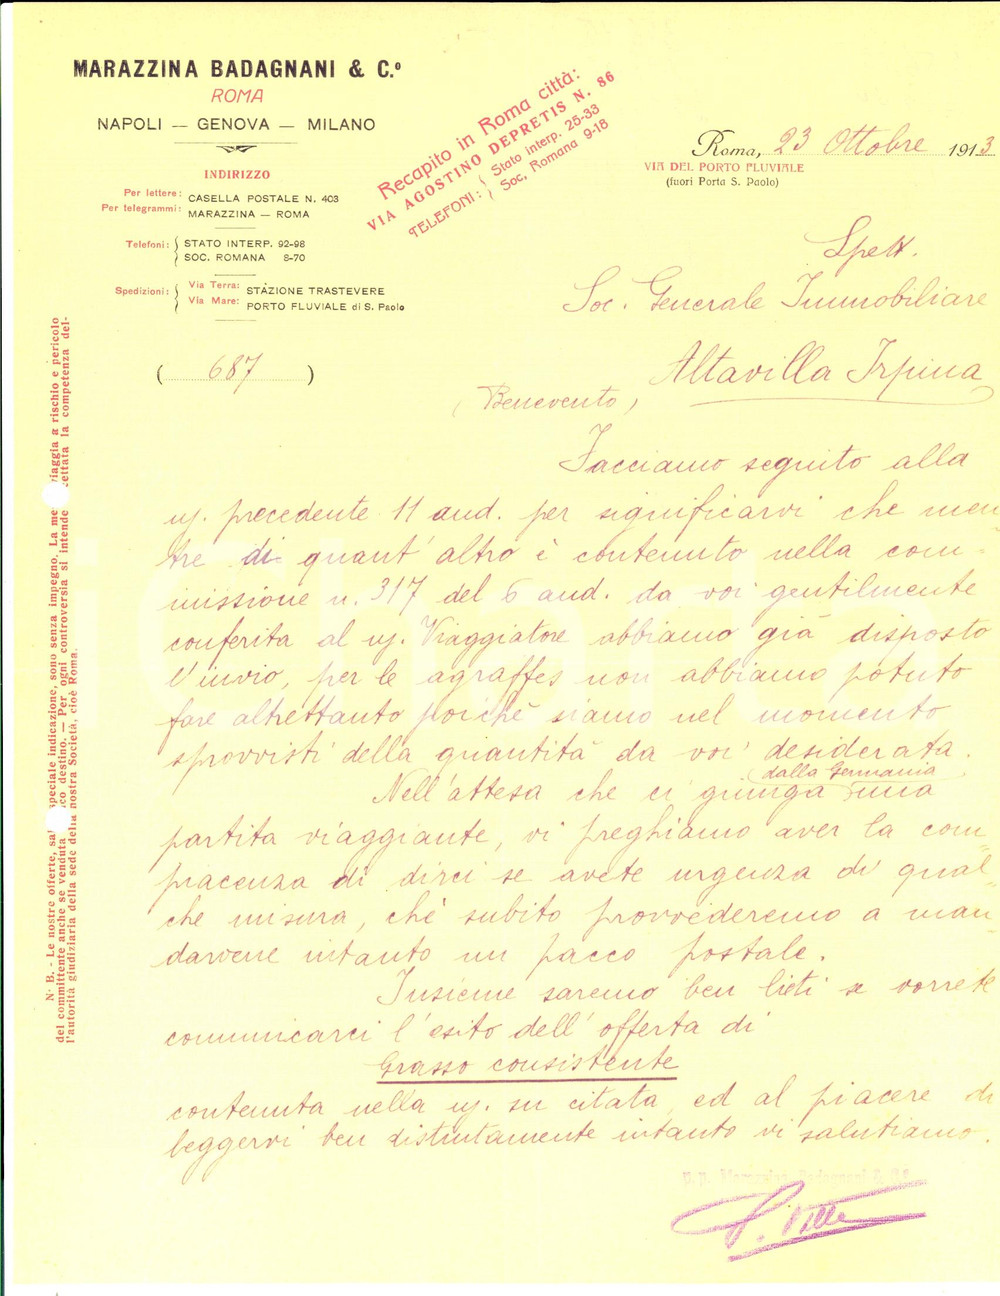 MARAZZINA BADAGNANI & C.º
ROMA
NAPOLI — GENOVA — MILANO
INDIRIZZO
Per lettere: CASELLA POSTALE N. 403
Per telegrammi: MARAZZINA — ROMA
Telefoni: STATO INTERP. 92-98
SOC. ROMANA 8-70
Spedizioni: Via Terra: STAZIONE TRASTEVERE
Via Mare: PORTO FLUVIALE di S. Paolo
Recapito in Roma città:
VIA AGOSTINO DEPRETIS N. 86
TELEFONI: Stato interp. 25-33
Soc. Romana 9-18
Roma, 23 Ottobre 1913
VIA DEL PORTO FLUVIALE
(fuori Porta S. Paolo)
(687)
Spett.
Soc. Generale Immobiliare
Altavilla Irpina
(Benevento)
Facciamo seguito alla
n/. precedente 11 and. per significarvi che men
tre di quant'altro è contenuto nella com-
missione n. 317 del 6 and. da voi gentilmente
conferita al n/. Viaggiatore abbiamo già disposto
l'invio, per le agraffes non abbiamo potuto
fare altrettanto poichè siamo nel momento
sprovvisti della quantità da voi desiderata.
Nell'attesa che ci giunga dalla Germania una
partita viaggiante, vi preghiamo aver la com=
piacenza di dirci se avete urgenza di qual=
che misura, chè subito provvederemo a man=
darvene intanto un pacco postale.
Insieme saremo ben lieti se vorrete
comunicarci l'esito dell'offerta di
Grasso consistente
contenuta nella n/. su citata, ed al piacere di
leggervi ben distintamente intanto vi salutiamo.
p. p. Marazzina Badagnani & C.º
N. B. - Le nostre offerte, speciale indicazione, sono senza impegno. La viaggia a rischio e pericolo
del committente anche se venduta destino. — Per ogni controversia si intende accettata la competenza del-
l'autorità giudiziaria della sede della nostra Società, cioè Roma.